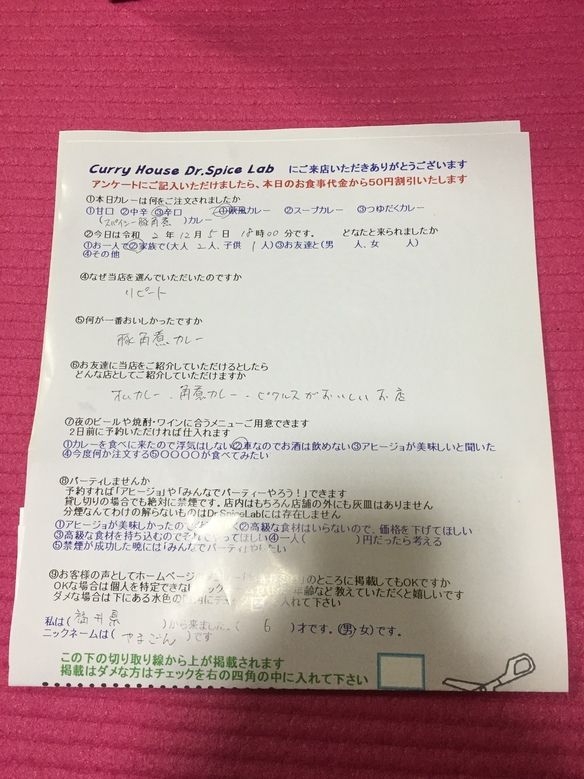 Curry House Dr.Spice Lab にご来店いただきありがとうございます
アンケートにご記入いただけましたら、本日のお食事代金から50円割引いたします
①本日カレーは何をご注文されましたか
①甘口 ②中辛 ③辛口 ①欧風カレー ②スープカレー ③つゆだくカレー
(スパイシー豚角煮)カレー
②今日は令和 2 年 12 月 5 日 18 時 00 分です。 どなたと来られましたか
①お一人で②家族で(大人 2 人、子供 1 人)③お友達と(男 人、女 人)
④その他
④なぜ当店を選んでいただいたのですか
リピート
⑤何が一番おいしかったですか
豚角煮カレー
⑥お友達に当店をご紹介していただけるとしたら
どんな店としてご紹介していただけますか
オムカレー、角煮カレー、ピクルスがおいしいお店
⑦夜のビールや焼酎・ワインに合うメニューご用意できます
2日前に予約いただければ仕入れます
①カレーを食べに来たので浮気はしない②車なのでお酒は飲めない③アヒージョが美味しいと聞いた
④今度何か注文する⑤〇〇〇〇が食べてみたい
⑧パーティしませんか
予約すれば「アヒージョ」や「みんなでパーティーやろう!」できます
貸し切りの場合でも絶対に禁煙です。店内はもちろん店舗の外にも灰皿はありません
分煙なんてわけの解らないものはDr.SpiceLabには存在しません
①アヒージョが美味しかったの く②高級な食材はいらないので、価格を下げてほしい
③高級な食材を持ち込むので てほしい④一人( )円だったら考える
⑤禁煙が成功した暁には「みんなでパーティ したい
⑨お客様の声としてホームページ のところに掲載してもOKですか
OKな場合は個人を特定できな 年齢など教えていただくと嬉しいです
ダメな場合は下にある水色の 入れて下さい
私は(福井県 )から来ました。( 6 )才です。(男・女)です。
ニックネームは( やまごん )です
この下の切り取り線から上が掲載されます
掲載はダメな方はチェックを右の四角の中に入れて下さい